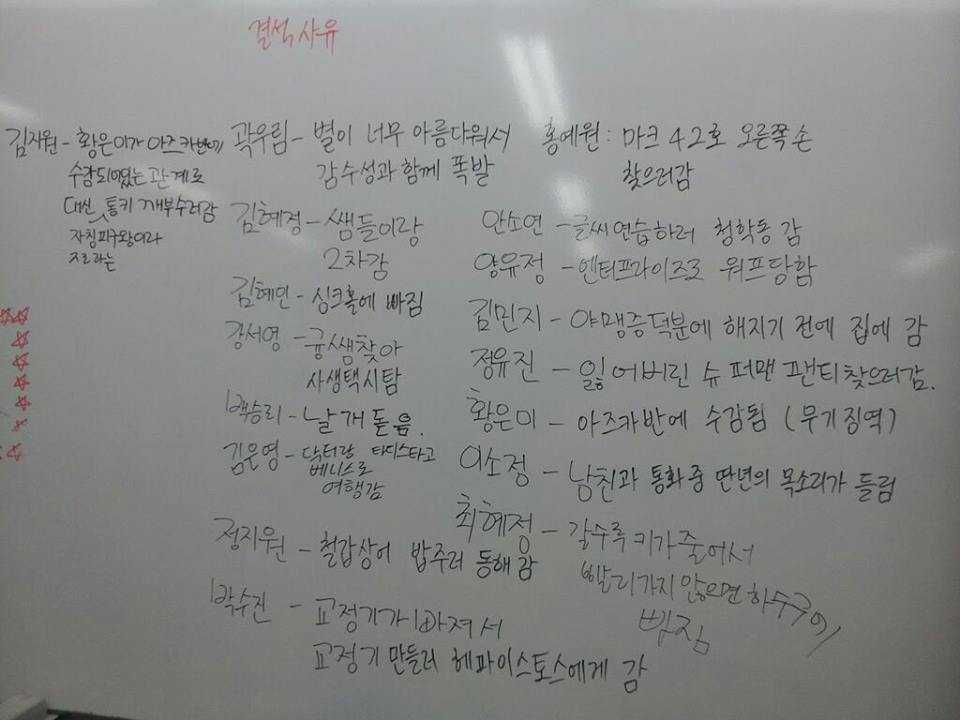 결석사유
김지원 - 황은미가 아즈카반에
수감되어있는 관계로
대신 통키 깨부수러감
자칭피구왕이라
지르라는
곽우림 - 별이 너무 아름다워서
감수성과 함께 폭발
홍예원 : 마크 42호 오른쪽 손
찾으러감
김혜정 - 쌤들이랑
2차감
김혜인 - 싱크홀에 빠짐
강서영 - 균쌤찾아
사생택시탐
백승리 - 날개돋음.
김은영 - 닥터랑 타디스타고
베니스로
여행감
정지원 - 철갑상어 밥주러 동해감
박수진 - 교정기가 빠져서
교정기 만들러 헤파이스토스에게 감
안소연 - 글씨연습하러 청학동 감
양유정 - 엔터프라이즈로 워프당함
김민지 - 야맹증덕분에 해지기 전에 집에 감
정유진 - 잃어버린 슈퍼맨 팬티찾으러감.
황은미 - 아즈카반에 수감됨 (무기징역)
이소정 - 남친과 통화 중 딴년의 목소리가 들림
최혜정 - 갈수록 키가 줄어서
빨리가지 않으면 하수구에
빠짐